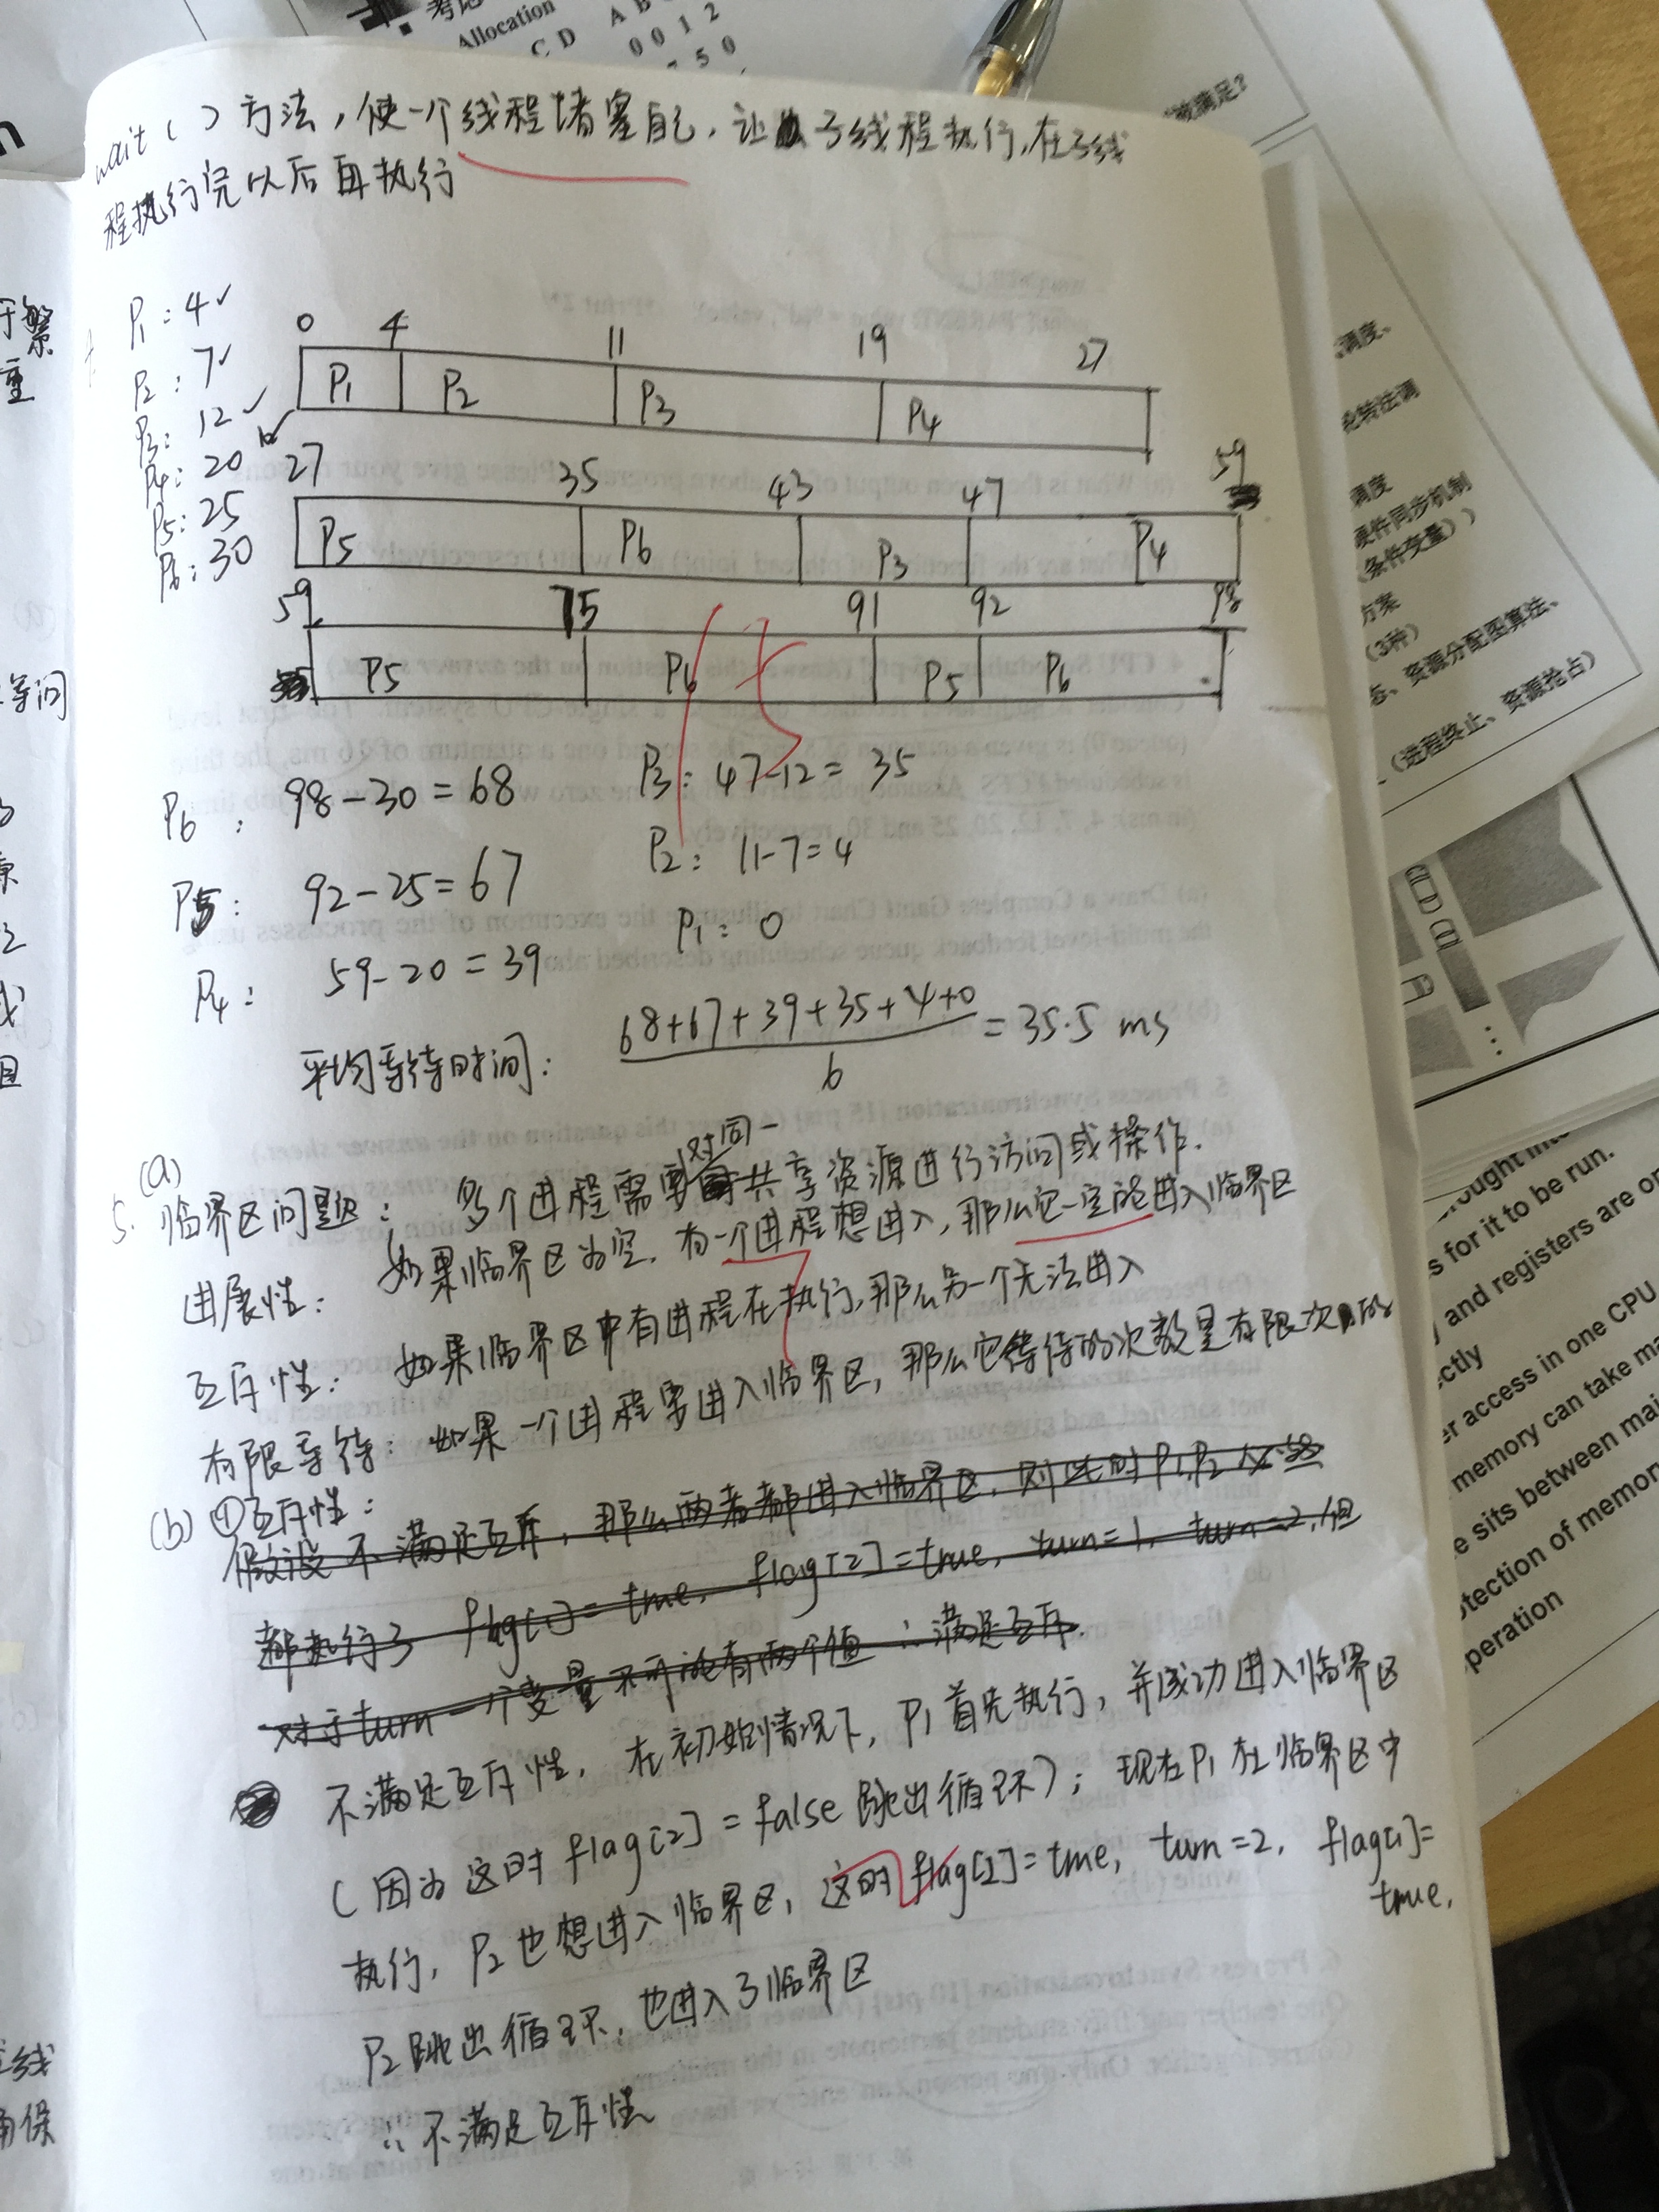 Allocation
C D
0 0 1 2
7 5 0
wait ( ) 方法，使一个线程堵塞自己，让子线程执行，在子线
程执行完以后再执行
P1 : 4 ✓
P2 : 7 ✓
P3 : 12 ✓
P4 : 20
P5 : 25
P6 : 30
0 4 11 19 27
P1 P2 P3 P4
27 35 43 47 59
P5 P6 P3 P4
59 75 91 92 98
P5 P6 P5 P6
P6 : 98-30=68
P3 : 47-12= 35
P5 : 92-25=67
P2 : 11-7=4
P4 : 59-20=39
P1 : 0
平均等待时间： 68+67+39+35+4+0 / 6 = 35.5 ms
5. (a)
临界区问题： 多个进程需要对同一共享资源进行访问或操作.
进展性： 如果临界区为空，有一个进程想进入，那么它一定能进入临界区
互斥性： 如果临界区中有进程在执行，那么另一个无法进入
有限等待： 如果一个进程要进入临界区，那么它等待的次数是有限次的
(b) ①互斥性：
假设不满足互斥，那么两者都进入临界区，则此时P1,P2
都执行了 flag[1]= true, flag[2]=true, turn=1, turn=2,但
对于turn一个变量不可能有两个值 ∴满足互斥.
不满足互斥性，在初始情况下，P1首先执行，并成功进入临界区
(因为这时 flag[2] = false 跳出循环)；现在P1在临界区中
执行，P2也想进入临界区，这时flag[2]=true, turn=2, flag[1]=
true,
P2跳出循环，也进入了临界区
∴不满足互斥性
调度、
轮转法调
调度
硬件同步机制
(条件变量))
方案
(3种)
态、资源分配图算法、
(进程终止、资源抢占)
for it to be run.
and registers are
access in one CPU
memory can take
sits between
of memory
peration